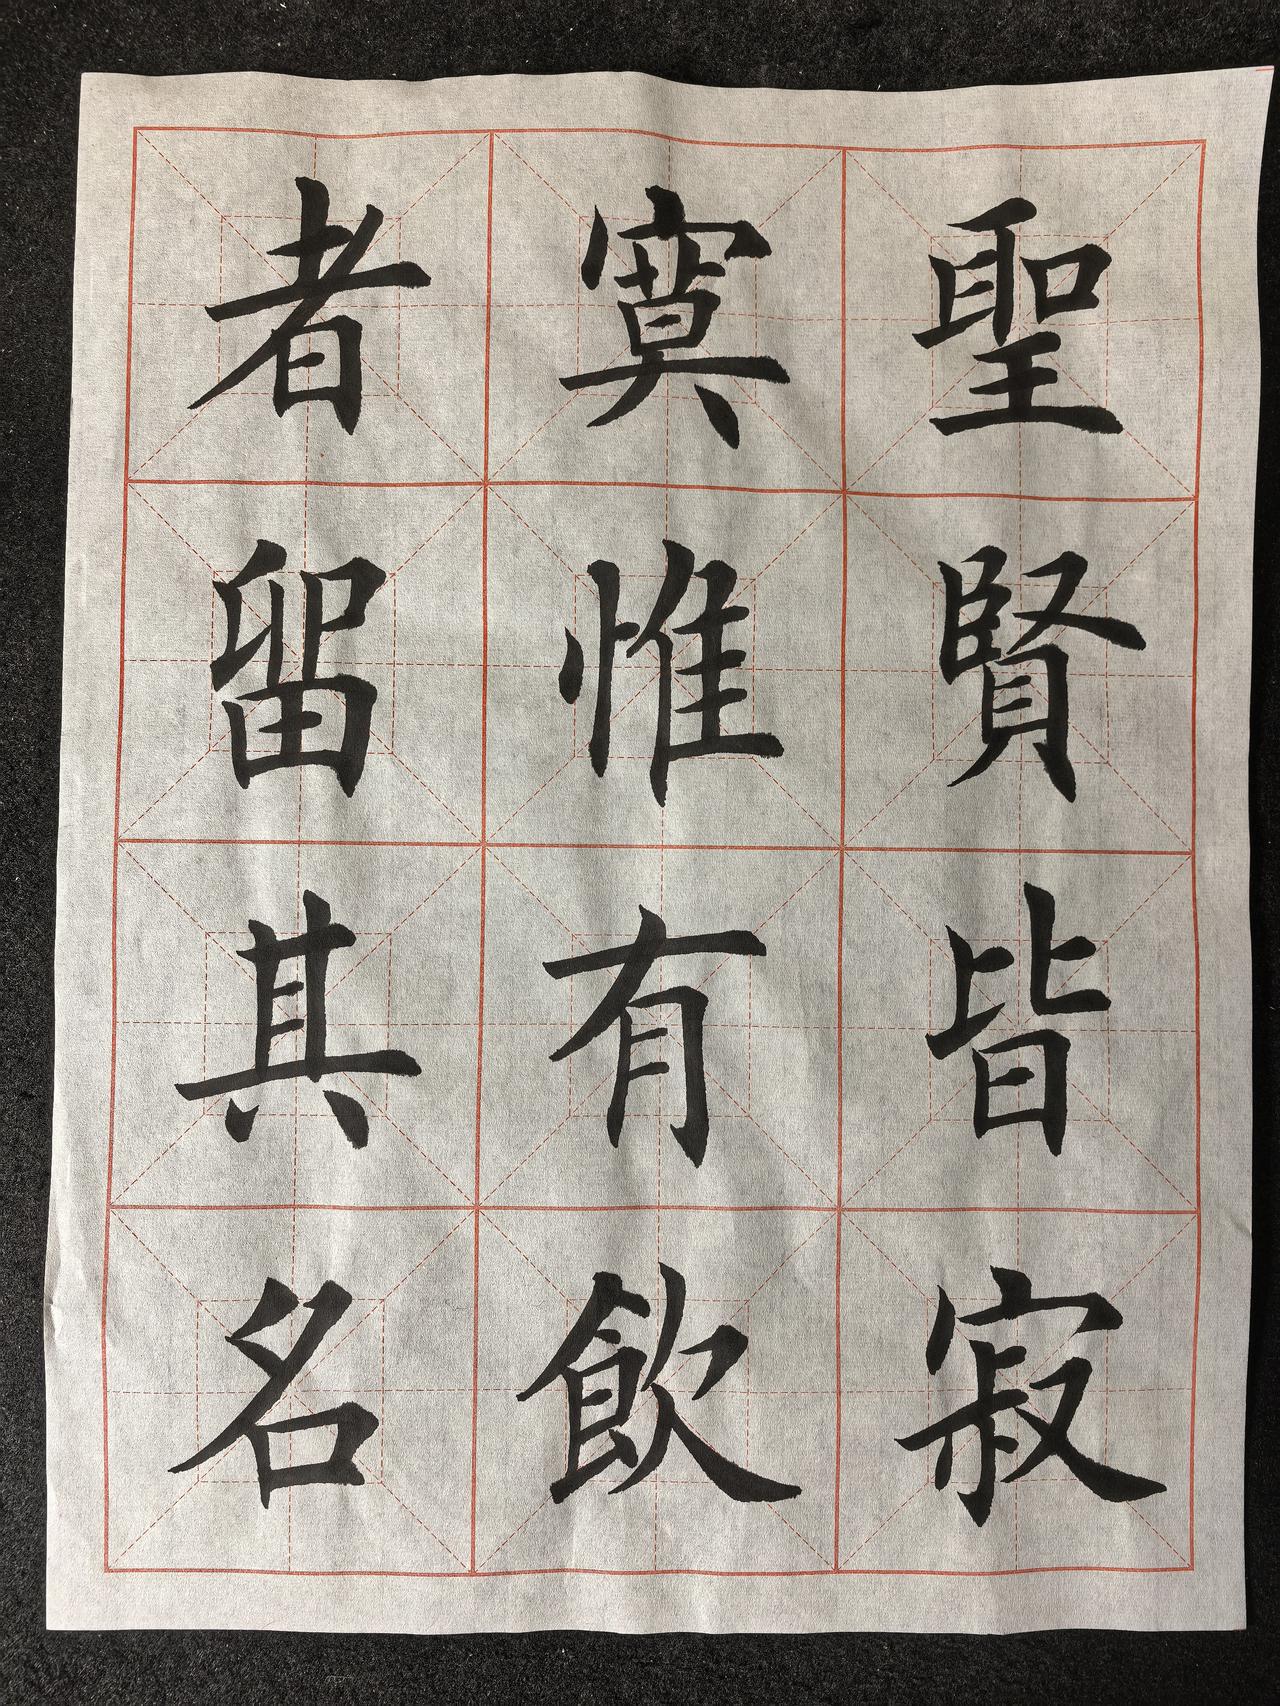 聖賢皆寂
寞惟有飲
者留其名